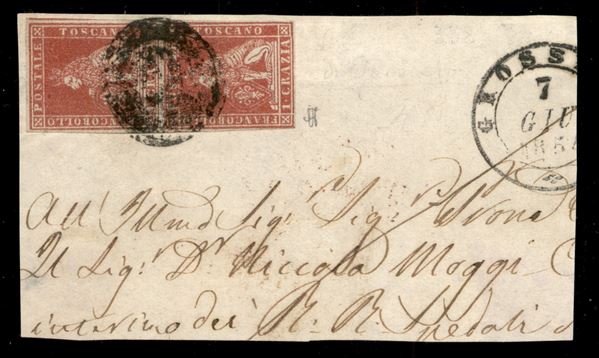 POSTALE TOSCANO TOSCANO
FRANCOBOLLO FRANCOBOLLO 1·CRAZIA
GROSSE
7
GIU
1854
All' Illmo Sigr Sigr Prone
Il Sigr Dr Niccola Moggi
interino dei R. R. Spedali